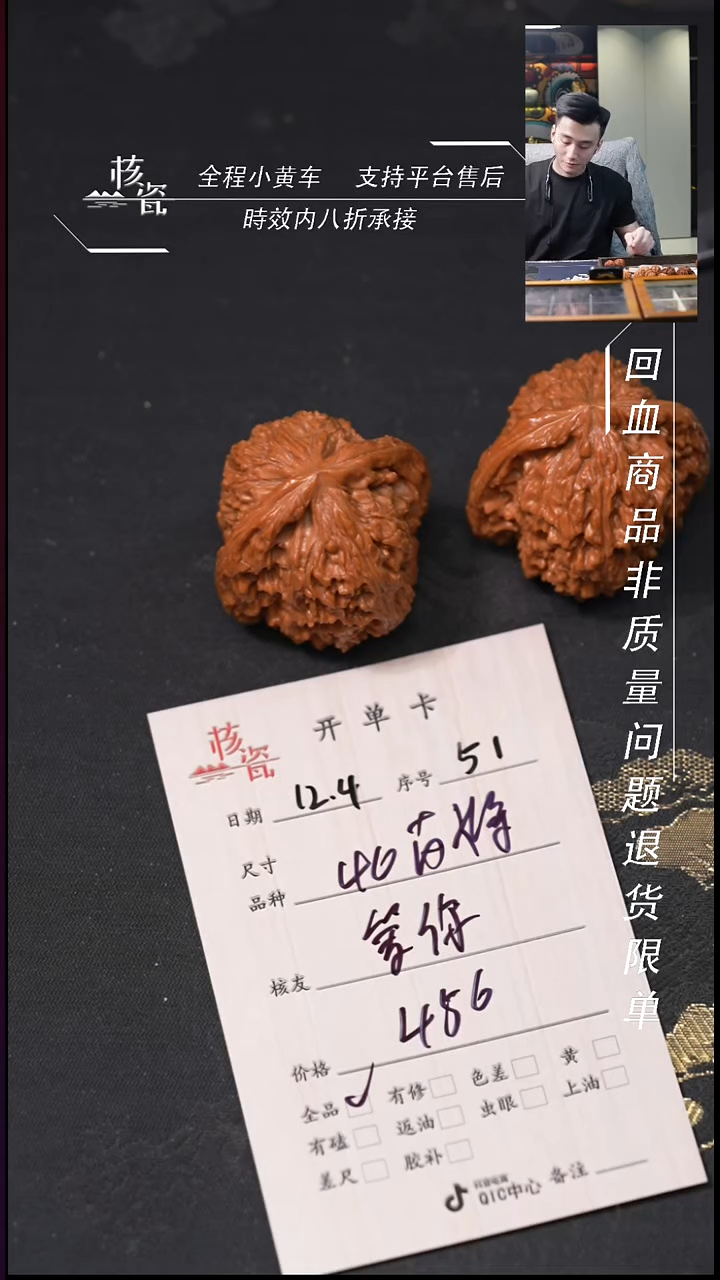 核瓷
全程小黄车 支持平台售后
時效内八折承接
回血商品非质量问题退货限单
核瓷
开单卡
日期 12.4 序号 51
尺寸
品种 40苗将
核友 等你
价格 486
全品 ✓ 有修 色差 黄
有磕 返油 虫眼 上油
差尺 胶补
QIC中心 备注